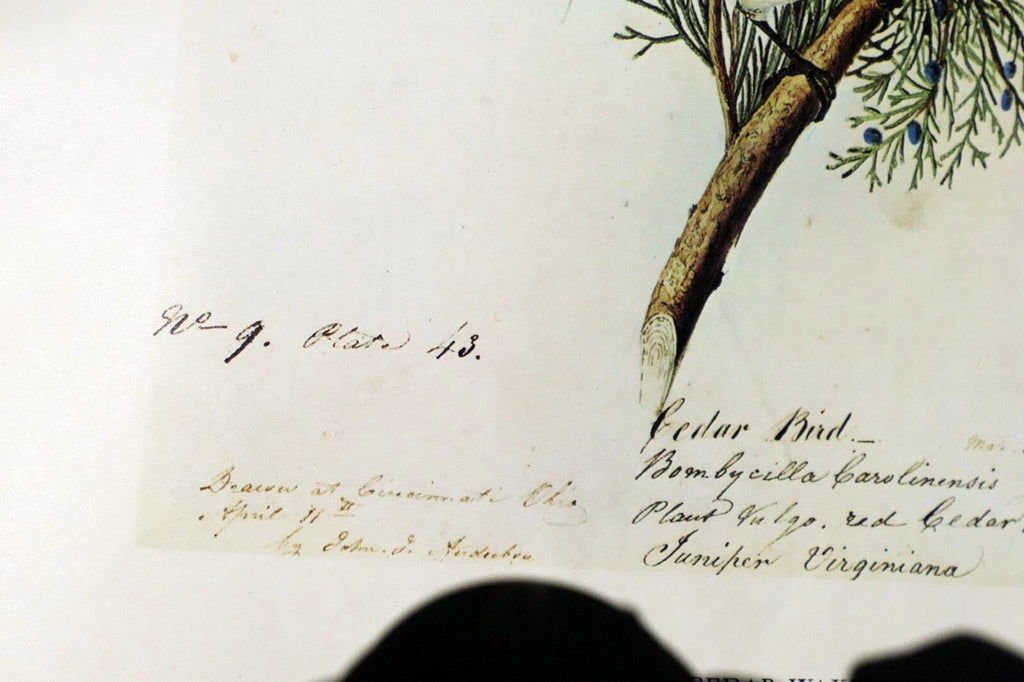 No 9. Plate 43.
Drawn at Cincinnati Ohio
April 11th
by John. J. Audubon
Cedar Bird._
Bombycilla Carolinensis
Plant Vulgo. red Cedar
Juniper Virginiana
CEDAR